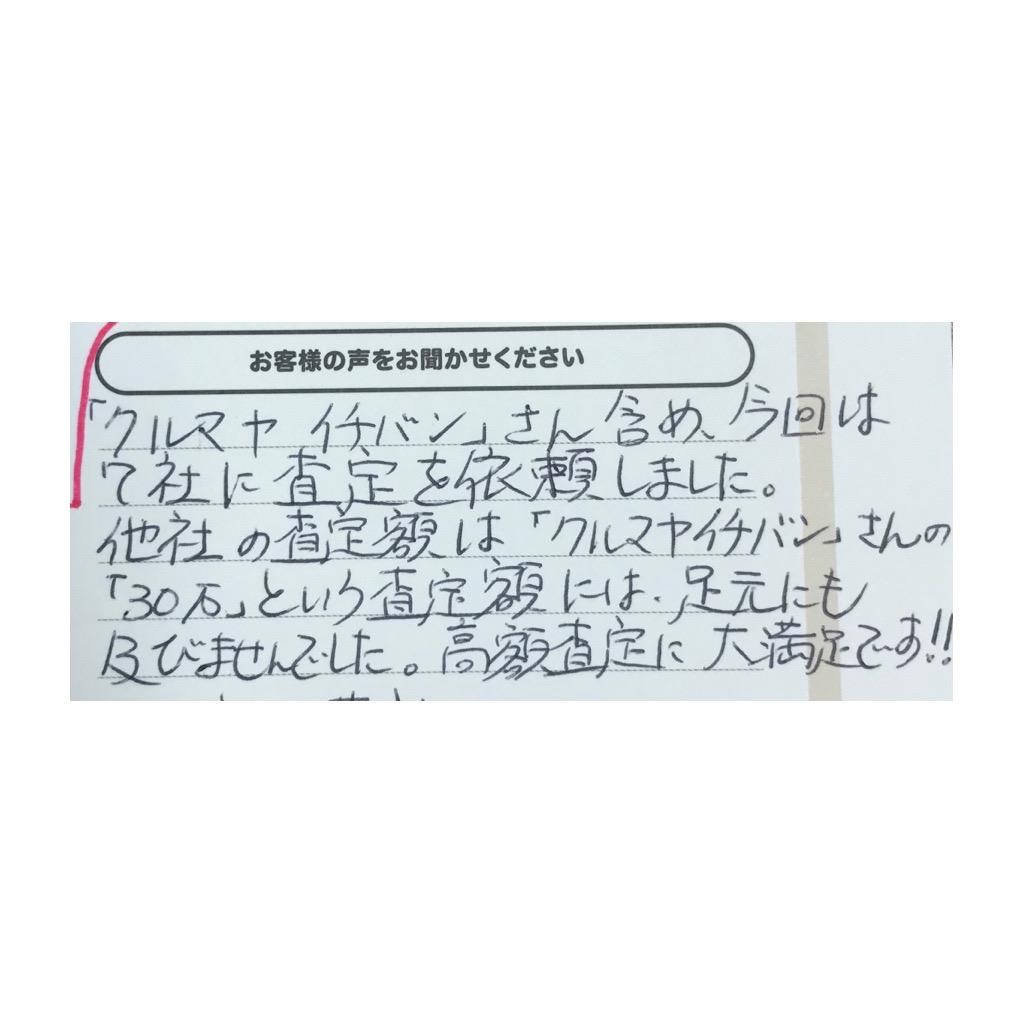 お客様の声をお聞かせください
「クルマヤイチバン」さん含め、今回は
7社に査定を依頼しました。
他社の査定額は「クルマヤイチバン」さんの
「30万」という査定額には、足元にも
及びませんでした。高額査定に大満足です!!